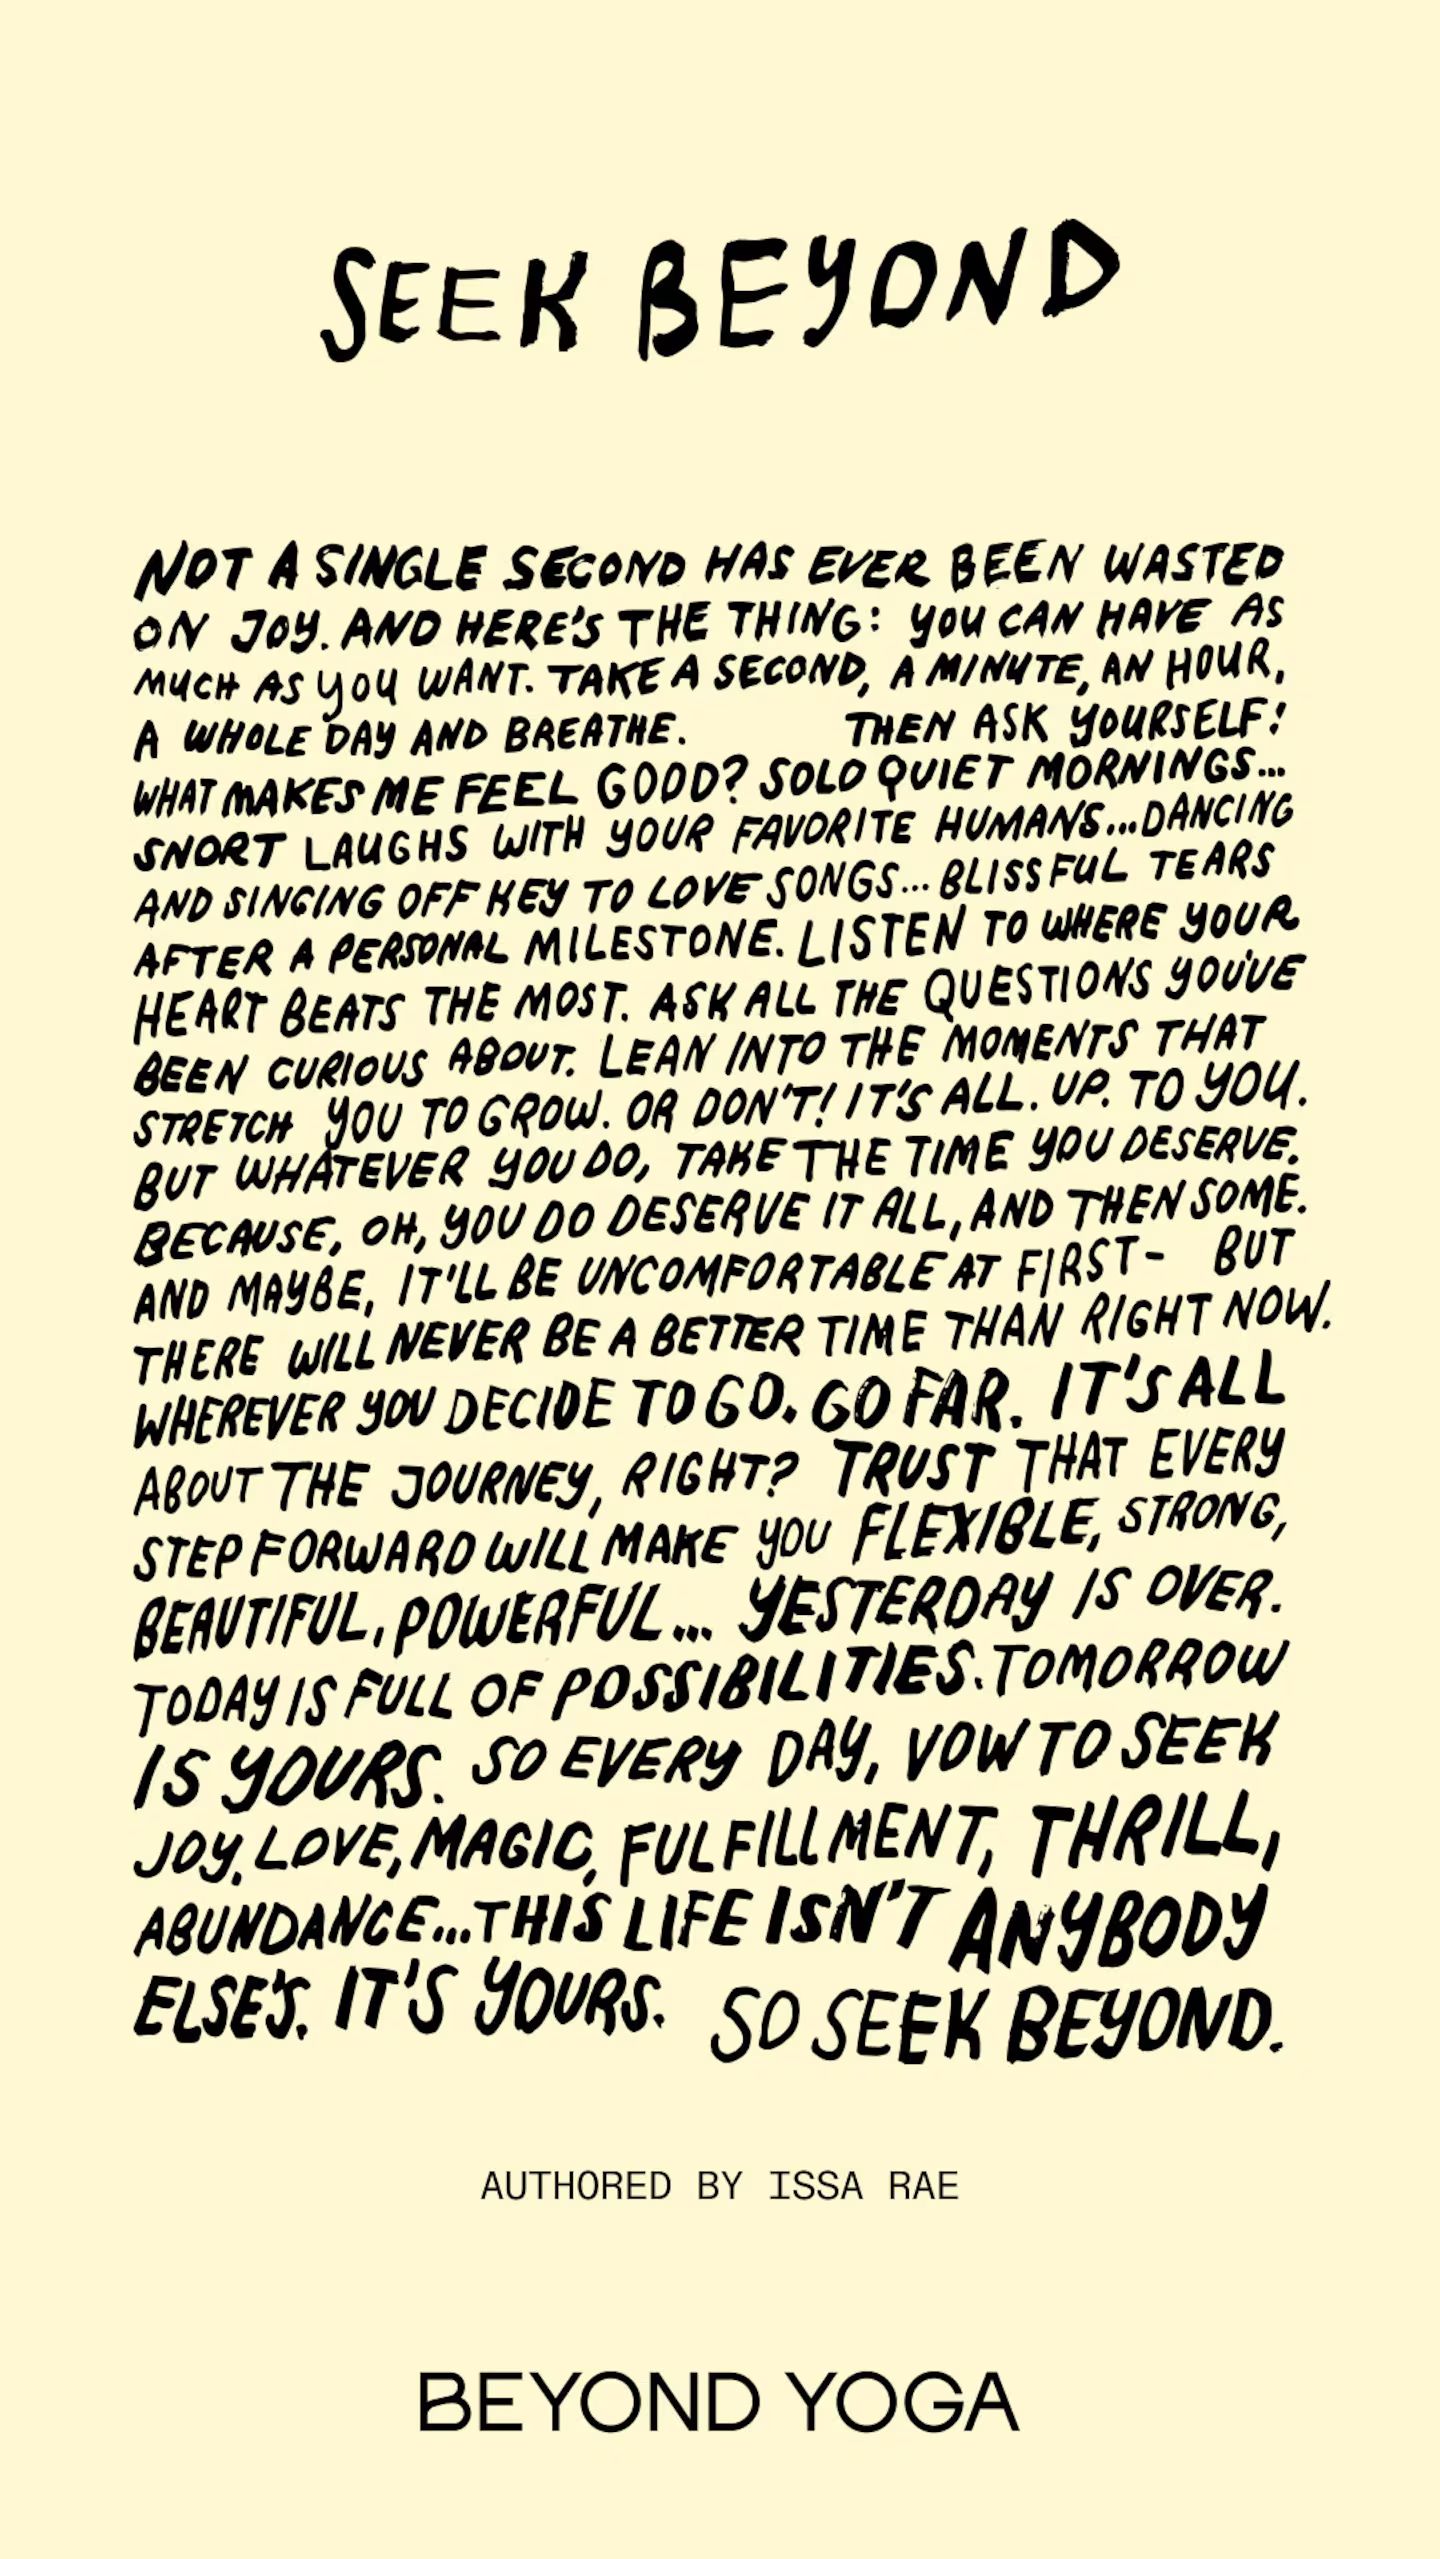 SEEK BEYOND
NOT A SINGLE SECOND HAS EVER BEEN WASTED
ON JOY. AND HERE'S THE THING: YOU CAN HAVE AS
MUCH AS YOU WANT. TAKE A SECOND, A MINUTE, AN HOUR,
A WHOLE DAY AND BREATHE. THEN ASK YOURSELF:
WHAT MAKES ME FEEL GOOD? SOLO QUIET MORNINGS...
SNORT LAUGHS WITH YOUR FAVORITE HUMANS...DANCING
AND SINGING OFF KEY TO LOVE SONGS...BLISSFUL TEARS
AFTER A PERSONAL MILESTONE. LISTEN TO WHERE YOUR
HEART BEATS THE MOST. ASK ALL THE QUESTIONS YOU'VE
BEEN CURIOUS ABOUT. LEAN INTO THE MOMENTS THAT
STRETCH YOU TO GROW. OR DON'T! IT'S ALL. UP. TO YOU.
BUT WHATEVER YOU DO, TAKE THE TIME YOU DESERVE.
BECAUSE, OH, YOU DO DESERVE IT ALL, AND THEN SOME.
AND MAYBE, IT'LL BE UNCOMFORTABLE AT FIRST- BUT
THERE WILL NEVER BE A BETTER TIME THAN RIGHT NOW.
WHEREVER YOU DECIDE TO GO. GO FAR. IT'S ALL
ABOUT THE JOURNEY, RIGHT? TRUST THAT EVERY
STEP FORWARD WILL MAKE YOU FLEXIBLE, STRONG,
BEAUTIFUL, POWERFUL... YESTERDAY IS OVER.
TODAY IS FULL OF POSSIBILITIES. TOMORROW
IS YOURS. SO EVERY DAY, VOW TO SEEK
JOY, LOVE, MAGIC, FULFILLMENT, THRILL,
ABUNDANCE...THIS LIFE ISN'T ANYBODY
ELSE'S. IT'S YOURS. SO SEEK BEYOND.
AUTHORED BY ISSA RAE
BEYOND YOGA